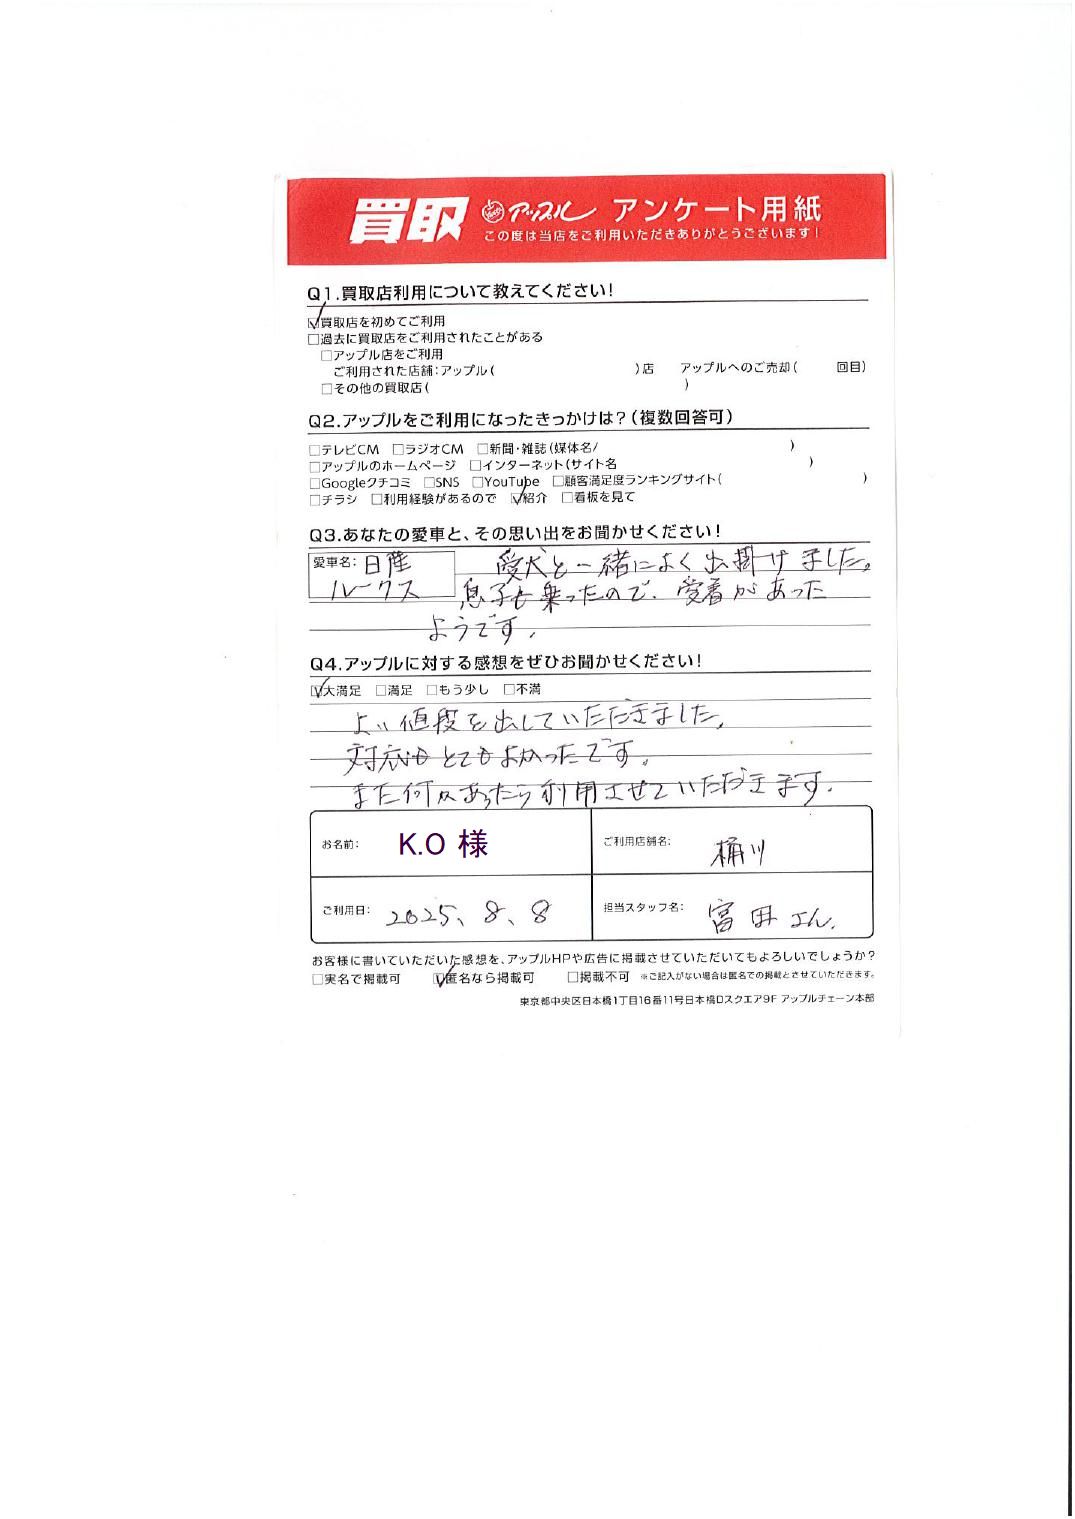 買取 アップル アンケート用紙
この度は当店をご利用いただきありがとうございます!
Q1.買取店利用について教えてください!
☑買取店を初めてご利用
□過去に買取店をご利用されたことがある
□アップル店をご利用
ご利用された店舗:アップル( )店 アップルへのご売却( 回目)
□その他の買取店( )
Q2.アップルをご利用になったきっかけは?(複数回答可)
□テレビCM □ラジオCM □新聞・雑誌(媒体名/ )
□アップルのホームページ □インターネット(サイト名 )
□Googleクチコミ □SNS □YouTube □顧客満足度ランキングサイト( )
□チラシ □利用経験があるので ☑紹介 □看板を見て
Q3.あなたの愛車と、その思い出をお聞かせください!
愛車名:日産 愛犬と一緒によく出掛けました。
ルークス 息子も乗ったので、愛着があった
ようです。
Q4.アップルに対する感想をぜひお聞かせください!
☑大満足 □満足 □もう少し □不満
よい値段を出していただきました。
対応もとてもよかったです。
また何かあったら利用させていただきます。
お名前: K.O 様 ご利用店舗名: 桶川
ご利用日: 2025、8、8 担当スタッフ名: 富田さん.
お客様に書いていただいた感想を、アップルHPや広告に掲載させていただいてもよろしいでしょうか?
□実名で掲載可 ☑匿名なら掲載可 □掲載不可 ※ご記入がない場合は匿名での掲載とさせていただきます。
東京都中央区日本橋1丁目16番11号日本橋Dスクエア9F アップルチェーン本部